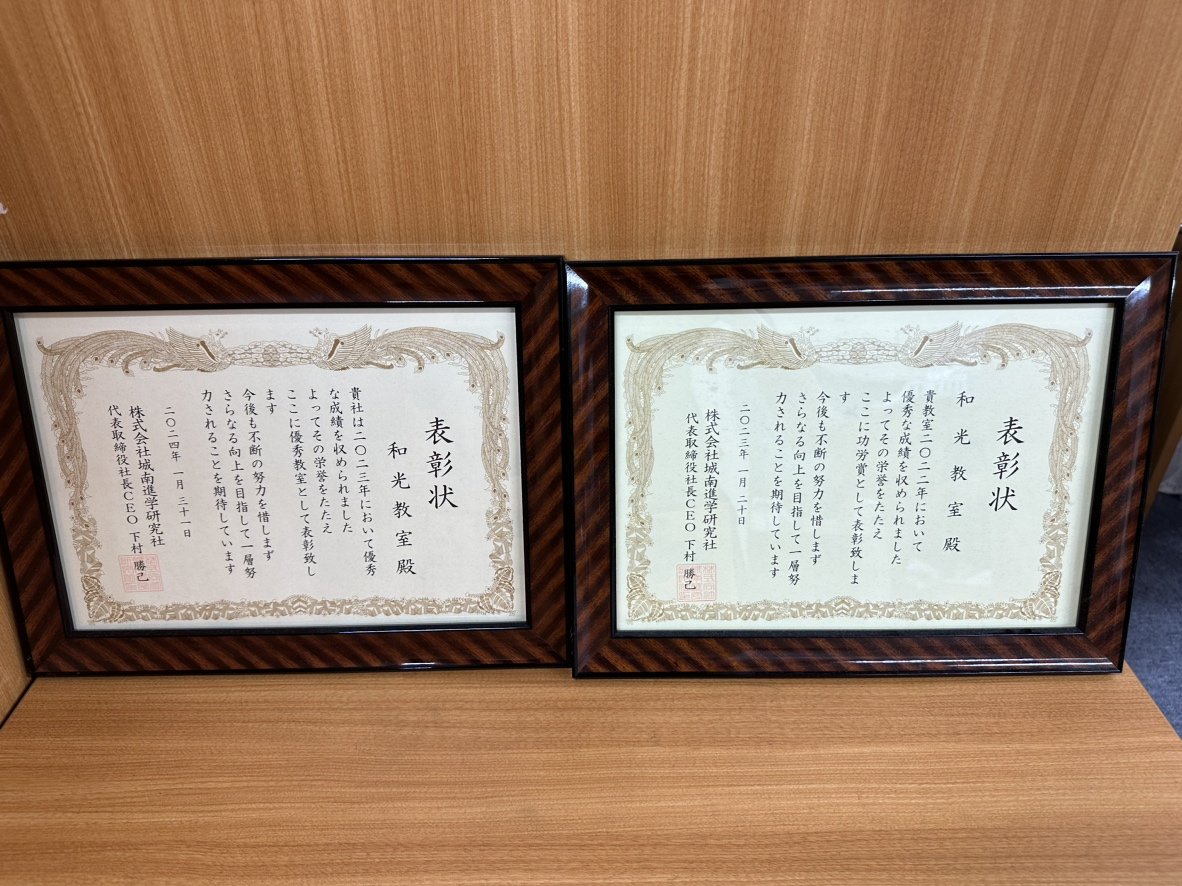 表彰状
和光教室殿
貴社は二〇二三年において優秀
な成績を収められました
よってその栄誉をたたえ
ここに優秀教室として表彰致し
ます
今後も不断の努力を惜しまず
さらなる向上を目指して一層努
力されることを期待しています
二〇二四年 一月 三十一日
株式会社城南進学研究社
代表取締役社長CEO 下村 勝己
表彰状
和光教室殿
貴教室二〇二二年において
優秀な成績を収められました
よってその栄誉をたたえ
ここに功労賞として表彰致しま
す
今後も不断の努力を惜しまず
さらなる向上を目指して一層努
力されることを期待しています
二〇二三年 一月 二十日
株式会社城南進学研究社
代表取締役社長CEO 下村 勝己